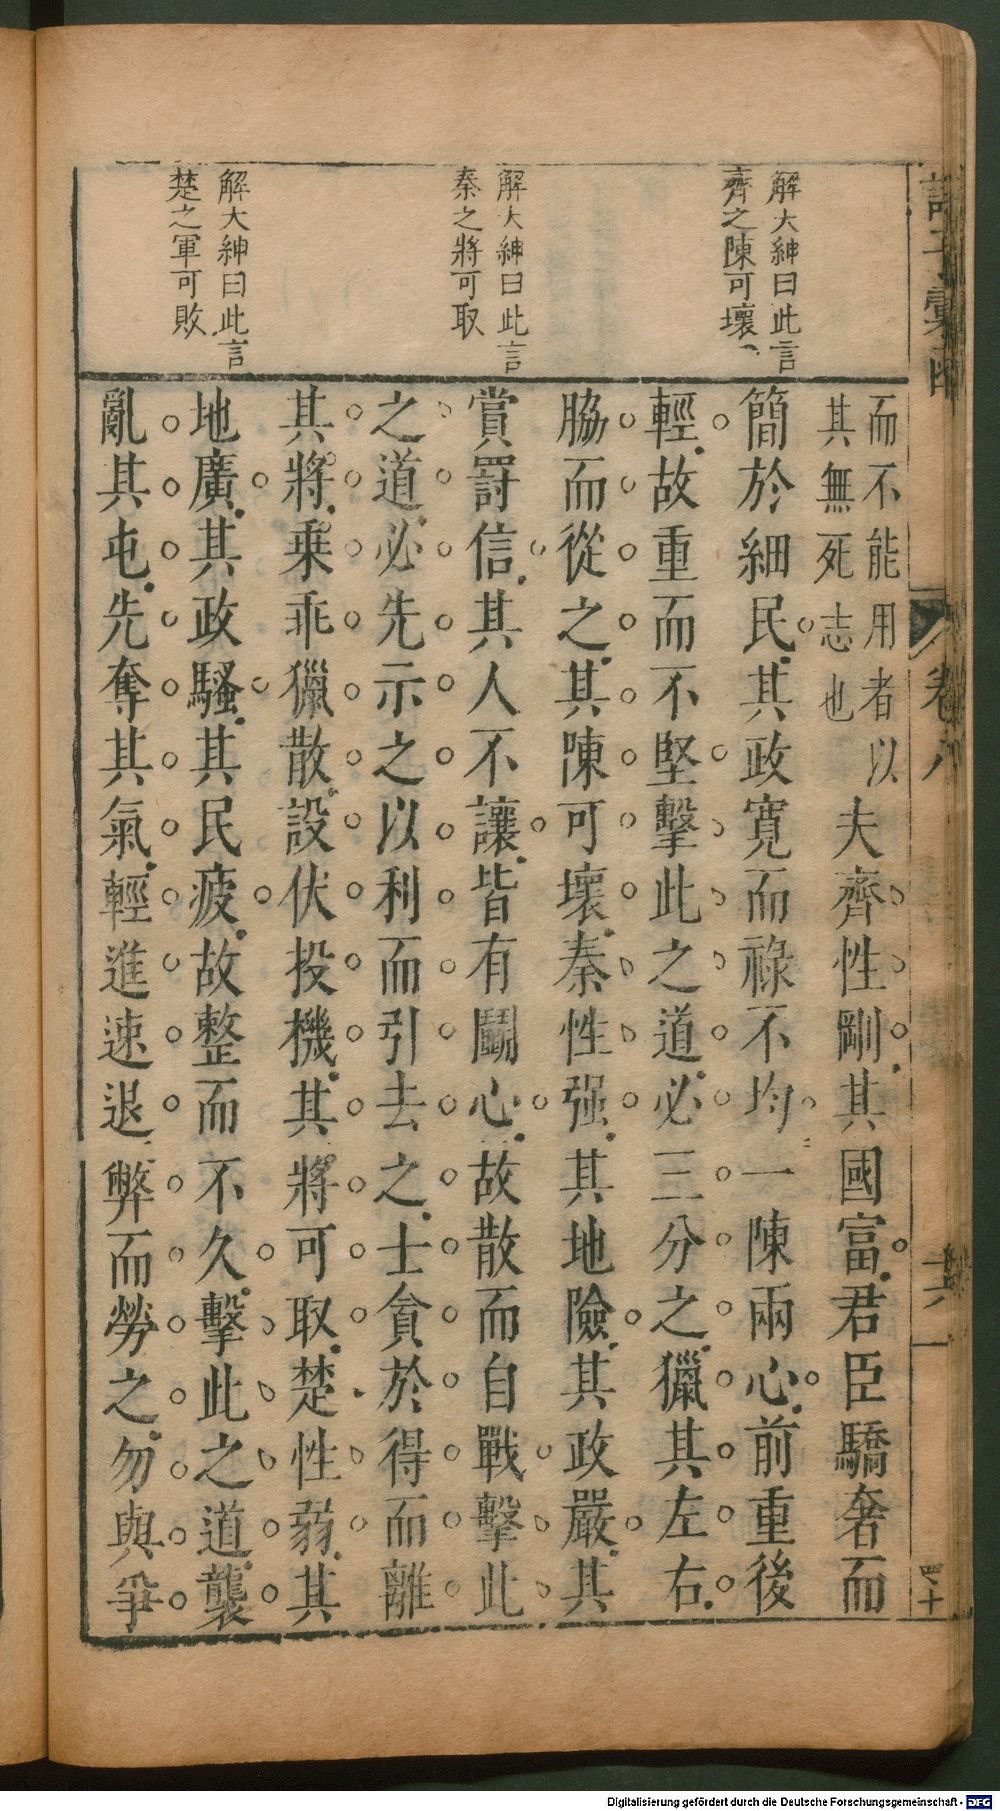 解大紳曰此言
齊之陳可壞
解大紳曰此言
秦之將可取
解大紳曰此言
楚之軍可敗
而不能用者以
其無死志也
夫齊性剛其國富君臣驕奢而
簡於細民其政寬而祿不均一陳兩心前重後
輕故重而不堅擊此之道必三分之獵其左右
脇而從之其陳可壞秦性强其地險其政嚴其
賞罰信其人不讓皆有鬭心故散而自戰擊此
之道必先示之以利而引去之士貪於得而離
其將乗乖獵散設伏投機其將可取楚性弱其
地廣其政騷其民疲故整而不久擊此之道襲
亂其屯先奪其氣輕進速退弊而勞之勿與爭
卷八
四十
Digitalisierung gefördert durch die Deutsche Forschungsgemeinschaft - DFG